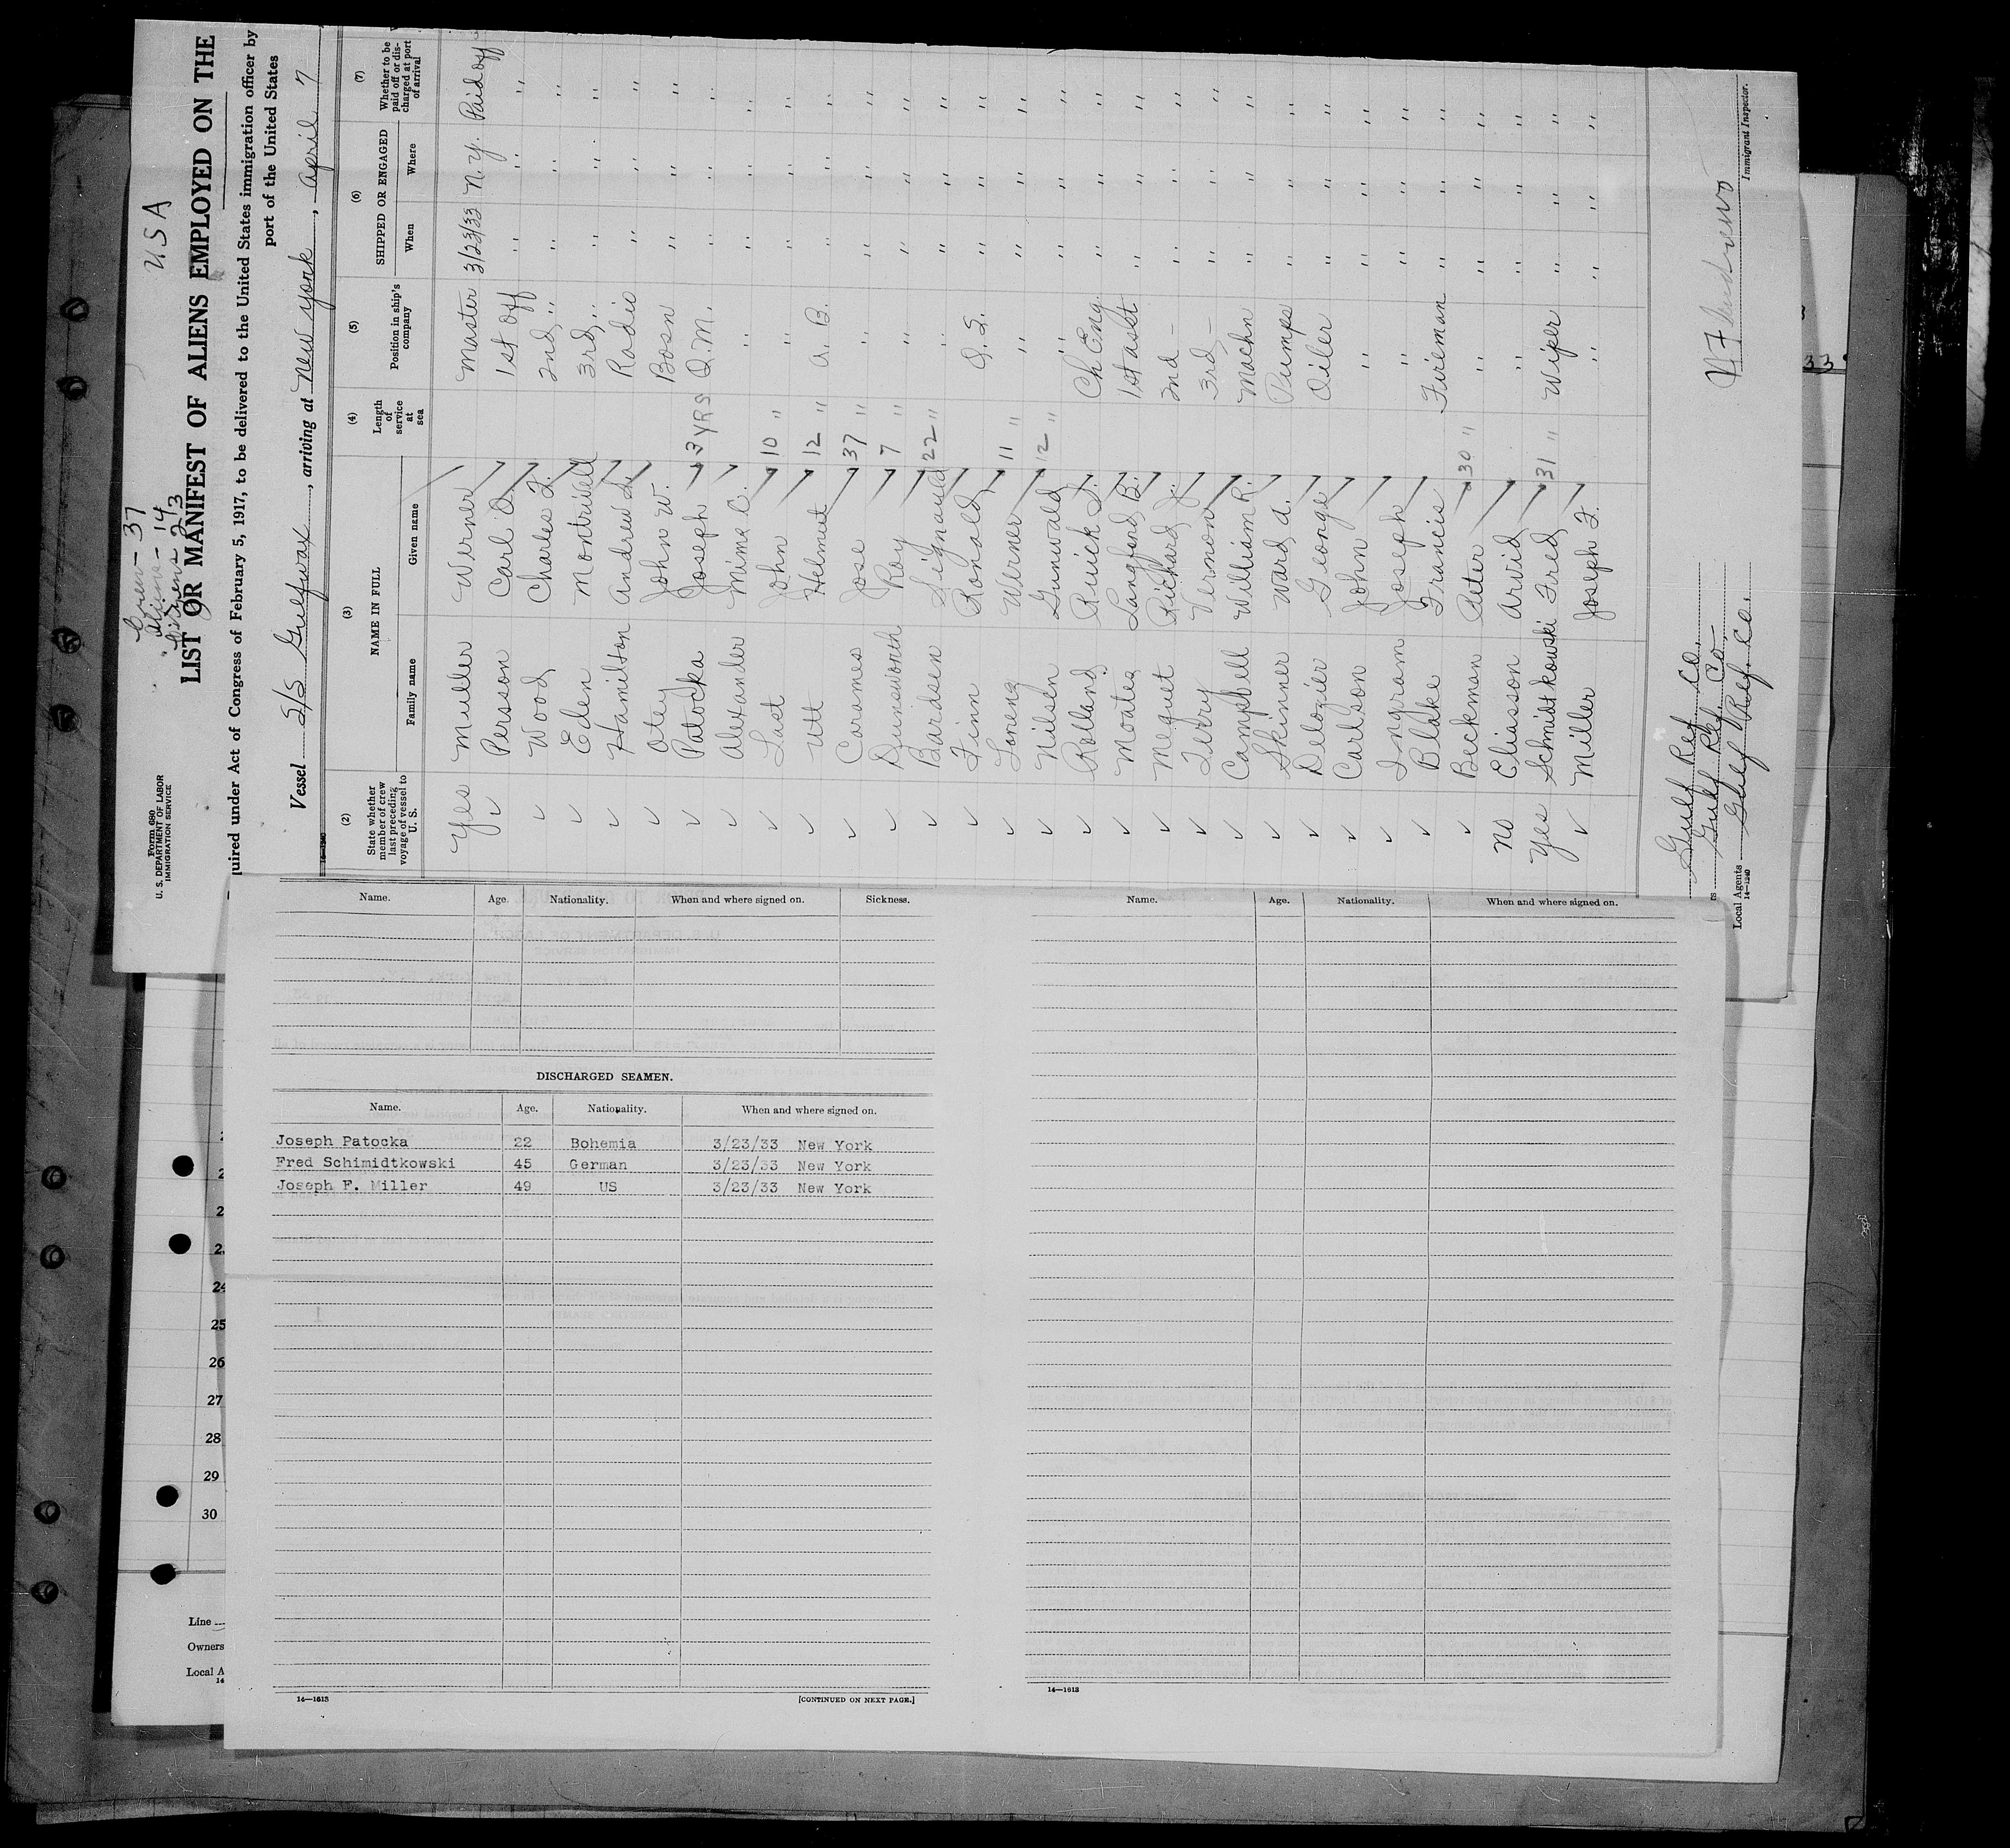 Form 680
U. S. DEPARTMENT OF LABOR
IMMIGRATION SERVICE
Crew - 37
Aliens - 14
Citizens 23
U.S.A
LIST OR MANIFEST OF ALIENS EMPLOYED ON THE
uired under Act of Congress of February 5, 1917, to be delivered to the United States immigration officer by
port of the United States
Vessel S/S Gulfwax, arriving at New York, April 7
(2) (3) (4) (5) (6) (7)
State whether member of crew last preceding voyage of vessel to U. S.
NAME IN FULL
Family name Given name
Length of service at sea
Position in ship's company
SHIPPED OR ENGAGED
When Where
Whether to be paid off or discharged at port of arrival
Yes Muller Werner Master 3/23/33 N.Y. Paid off
✓ Persson Carl O. 1st Off " " "
✓ Wood Charles L. 2nd " " " "
✓ Eden Montriell 3rd " " " "
✓ Hamilton Andrew L. Radio " " "
✓ Otey John W. Bosn " " "
✓ Patocka Joseph 3 YRS Q.M. " " "
✓ Alexander Mims C. " " " "
✓ Last John 10 " " " " "
✓ Utt Helmut 12 " A.B. " " "
✓ Carames Jose 37 " " " " "
✓ Dunsworth Roy 7 " " " " "
✓ Bardsen Sigmauld 22 " " " " "
✓ Finn Ronald O.S. " " "
✓ Lorenz Werner 11 " " " " "
✓ Nilsen Gunwald 12 " " " " "
✓ Rolland Ruick J. Ch Eng. " " "
✓ Moates Langford B. 1st asst " " "
✓ Mequet Richard J. 2nd - " " "
✓ Terry Vernon 3rd - " " "
✓ Campbell William R. Machn " " "
✓ Skinner Ward A. Pumps " " "
✓ Delozier George Oiler " " "
✓ Carlson John " " " "
✓ Ingram Joseph " " " "
✓ Blake Francis Fireman " " "
✓ Beckman Peter 30 " " " " "
No Eliasson Arvid " " " "
Yes Schmidtkowski Fred 31 " Wiper " " "
✓ Miller Joseph F. " " " "
Gulf Ref Co.
Gulf Ref. Co.
Local Agents Gulf Ref. Co.
14—1240
Immigrant Inspector.
Name. Age. Nationality. When and where signed on. Sickness.
DISCHARGED SEAMEN.
Name. Age. Nationality. When and where signed on.
Joseph Patocka 22 Bohemia 3/23/33 New York
Fred Schimidtkowski 45 German 3/23/33 New York
Joseph F. Miller 49 US 3/23/33 New York
14—1613
[CONTINUED ON NEXT PAGE.]
Name. Age. Nationality. When and where signed on.
14—1613
24
25
26
27
28
29
30
Line
Owners
Local A
14
33